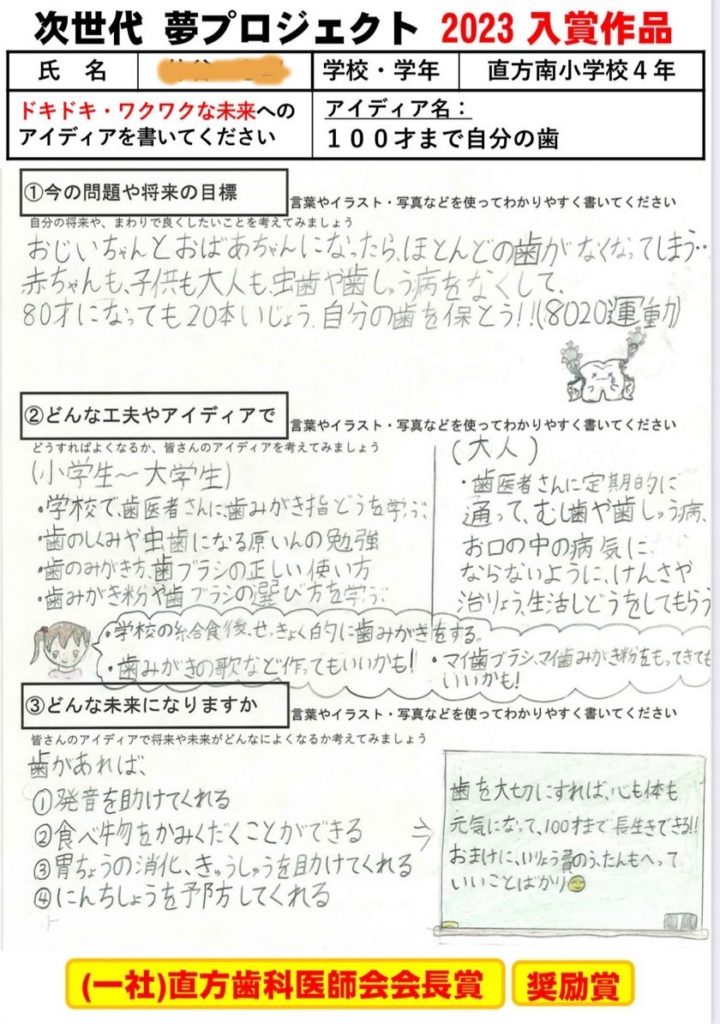 次世代 夢プロジェクト 2023 入賞作品
氏 名
学校・学年
直方南小学校4年
ドキドキ・ワクワクな未来への
アイディアを書いてください
アイディア名：
100才まで自分の歯
①今の問題や将来の目標
言葉やイラスト・写真などを使ってわかりやすく書いてください
自分の将来や、まわりで良くしたいことを考えてみましょう
おじいちゃんとおばあちゃんになったら、ほとんどの歯がなくなってしまう…
赤ちゃんも、子供も大人も、虫歯や歯しゅう病をなくして、
80才になっても20本いじょう、自分の歯を保とう!!(8020運動)
②どんな工夫やアイディアで
言葉やイラスト・写真などを使ってわかりやすく書いてください
どうすればよくなるか、皆さんのアイディアを考えてみましょう
(小学生〜大学生)
・学校で、歯医者さんに歯みがき指どうを学ぶ
・歯のしくみや虫歯になる原いんの勉強
・歯のみがき方、歯ブラシの正しい使い方
・歯みがき粉や歯ブラシの選び方を学ぶ
(大人)
・歯医者さんに定期的に
通って、むし歯や歯しゅう病、
お口の中の病気に
ならないように、けんさや
治りょう、生活しどうをしてもらう
・学校の給食後、せっきょく的に歯みがきをする。
・歯みがきの歌など作ってもいいかも!
・マイ歯ブラシ、マイ歯みがき粉をもってきても
いいかも!
③どんな未来になりますか
言葉やイラスト・写真などを使ってわかりやすく書いてください
皆さんのアイディアで将来や未来がどんなによくなるか考えてみましょう
歯があれば、
①発音を助けてくれる
②食べ物をかみくだくことができる
③胃ちょうの消化、きゅうしゅうを助けてくれる
④にんちしょうを予防してくれる
⇒
歯を大切にすれば、心も体も
元気になって、100才まで長生きできる!!
おまけに、いりょう費のふたんもへって
いいことばかり
(一社)直方歯科医師会会長賞
奨励賞